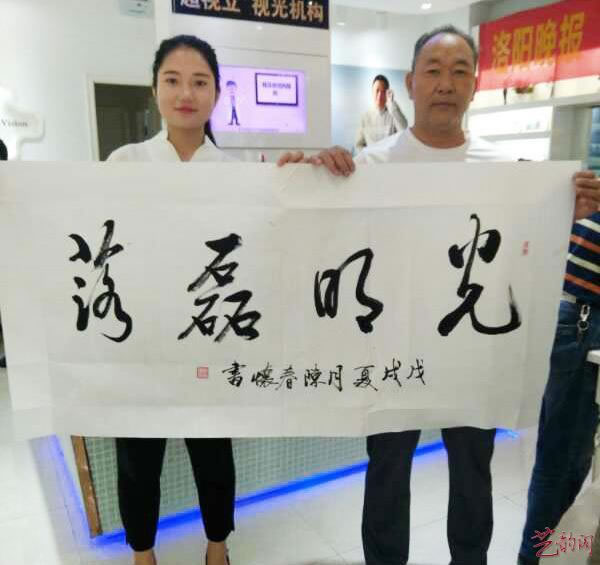 超视立 视光机构
洛阳晚报
Vision
光明磊落
戊戌夏月陳春懷書
艺韵阁